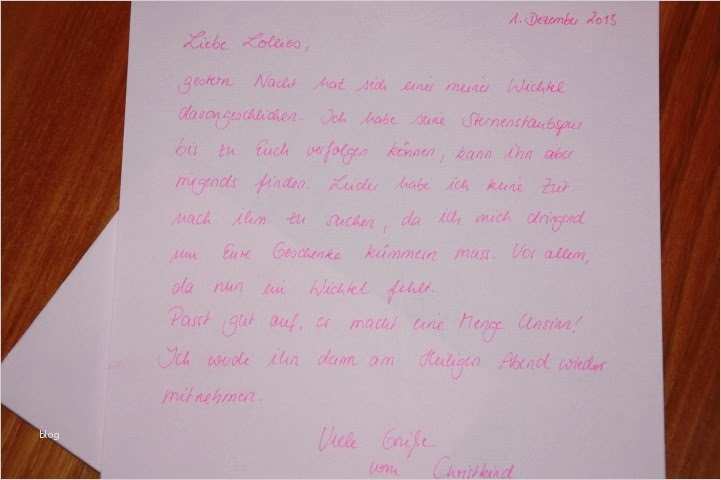 1. Dezember 2013
Liebe Lolleos,
gestern Nacht hat sich einer meiner Wichtel
davongeschlichen. Ich habe seine Sternenstaubspur
bis zu Euch verfolgen können, kann ihn aber
nirgends finden. Leider habe ich keine Zeit
nach ihm zu suchen, da ich mich dringend
um Eure Geschenke kümmern muss. Vor allem,
da nun ein Wichtel fehlt.
Passt gut auf, er macht eine Menge Unsinn!
Ich werde ihn dann am Heiligen Abend wieder
mitnehmen.
Viele Grüße
vom Christkind
blog